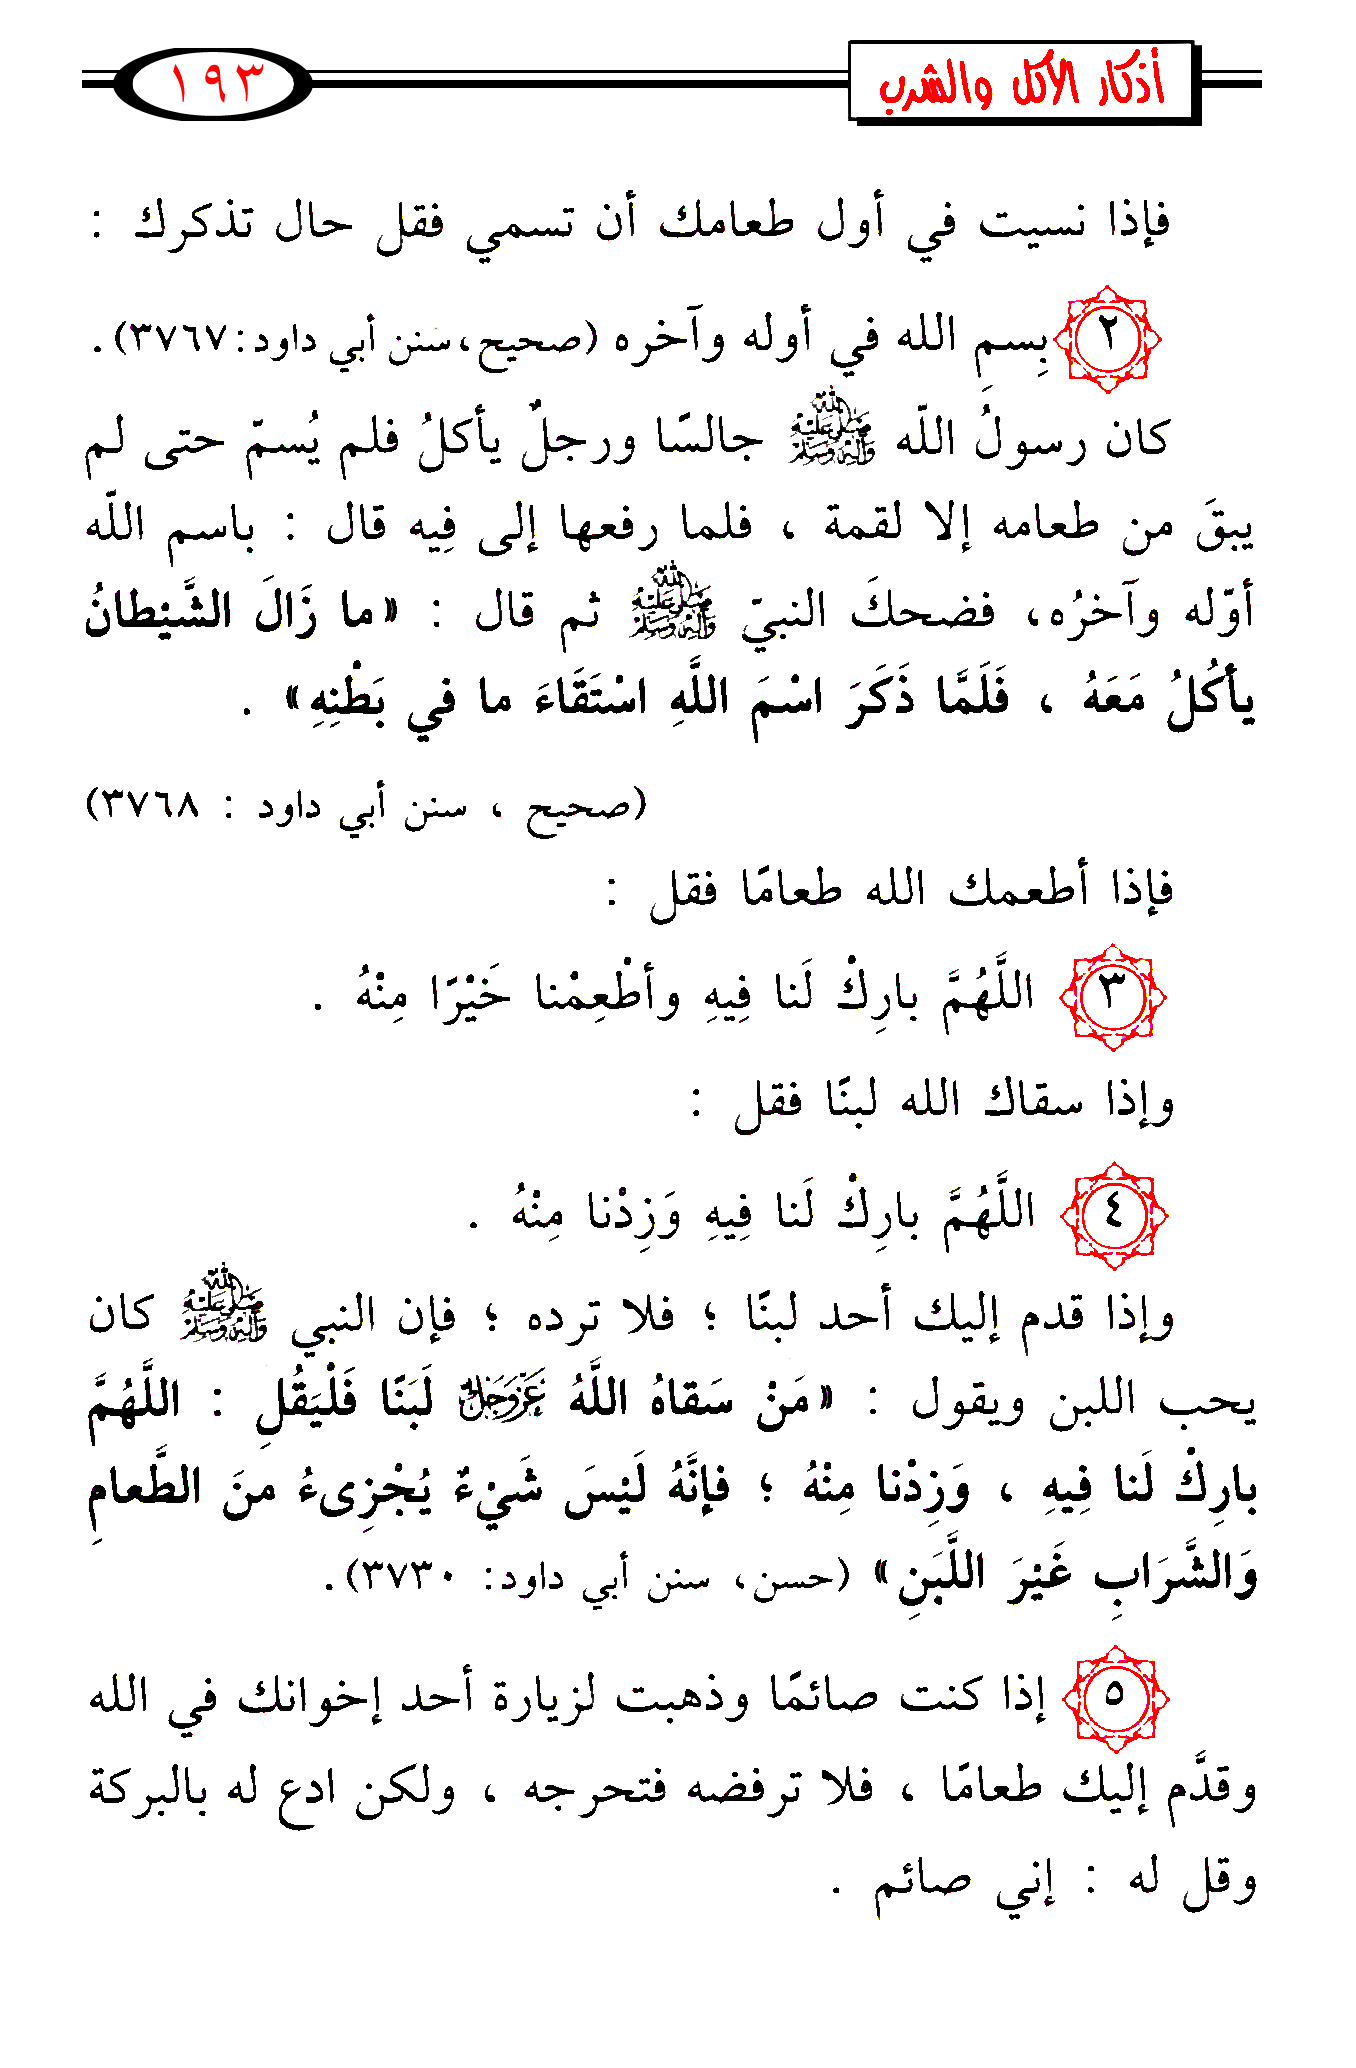 أذكار الأكل والشرب
١٩٣
فإذا نسيت في أول طعامك أن تسمي فقل حال تذكرك :
٢ بِسمِ الله في أوله وآخره (صحيح، سنن أبي داود: ٣٧٦٧).
كان رسولُ اللّه ﷺ جالسًا ورجلٌ يأكلُ فلم يُسمّ حتى لم
يبقَ من طعامه إلا لقمة ، فلما رفعها إلى فِيه قال : باسم اللّه
أوّله وآخرُه، فضحكَ النبيّ ﷺ ثم قال : «ما زَالَ الشَّيْطانُ
يأكُلُ مَعَهُ ، فَلَمَّا ذَكَرَ اسْمَ اللَّهِ اسْتَقَاءَ ما في بَطْنِهِ» .
(صحيح ، سنن أبي داود : ٣٧٦٨)
فإذا أطعمك الله طعامًا فقل :
٣ اللَّهُمَّ بارِكْ لَنا فِيهِ وأطْعِمْنا خَيْرًا مِنْهُ .
وإذا سقاك الله لبنًا فقل :
٤ اللَّهُمَّ بارِكْ لَنا فِيهِ وَزِدْنا مِنْهُ .
وإذا قدم إليك أحد لبنًا ؛ فلا ترده ؛ فإن النبي ﷺ كان
يحب اللبن ويقول : «مَنْ سَقاهُ اللَّهُ عَزَّوَجَلَّ لَبَنًا فَلْيَقُلِ : اللَّهُمَّ
بارِكْ لَنا فِيهِ ، وَزِدْنا مِنْهُ ؛ فإنَّهُ لَيْسَ شَيْءٌ يُجْزِىءُ منَ الطَّعامِ
وَالشَّرَابِ غَيْرَ اللَّبَنِ» (حسن، سنن أبي داود: ٣٧٣٠).
٥ إذا كنت صائمًا وذهبت لزيارة أحد إخوانك في الله
وقدَّم إليك طعامًا ، فلا ترفضه فتحرجه ، ولكن ادع له بالبركة
وقل له : إني صائم .